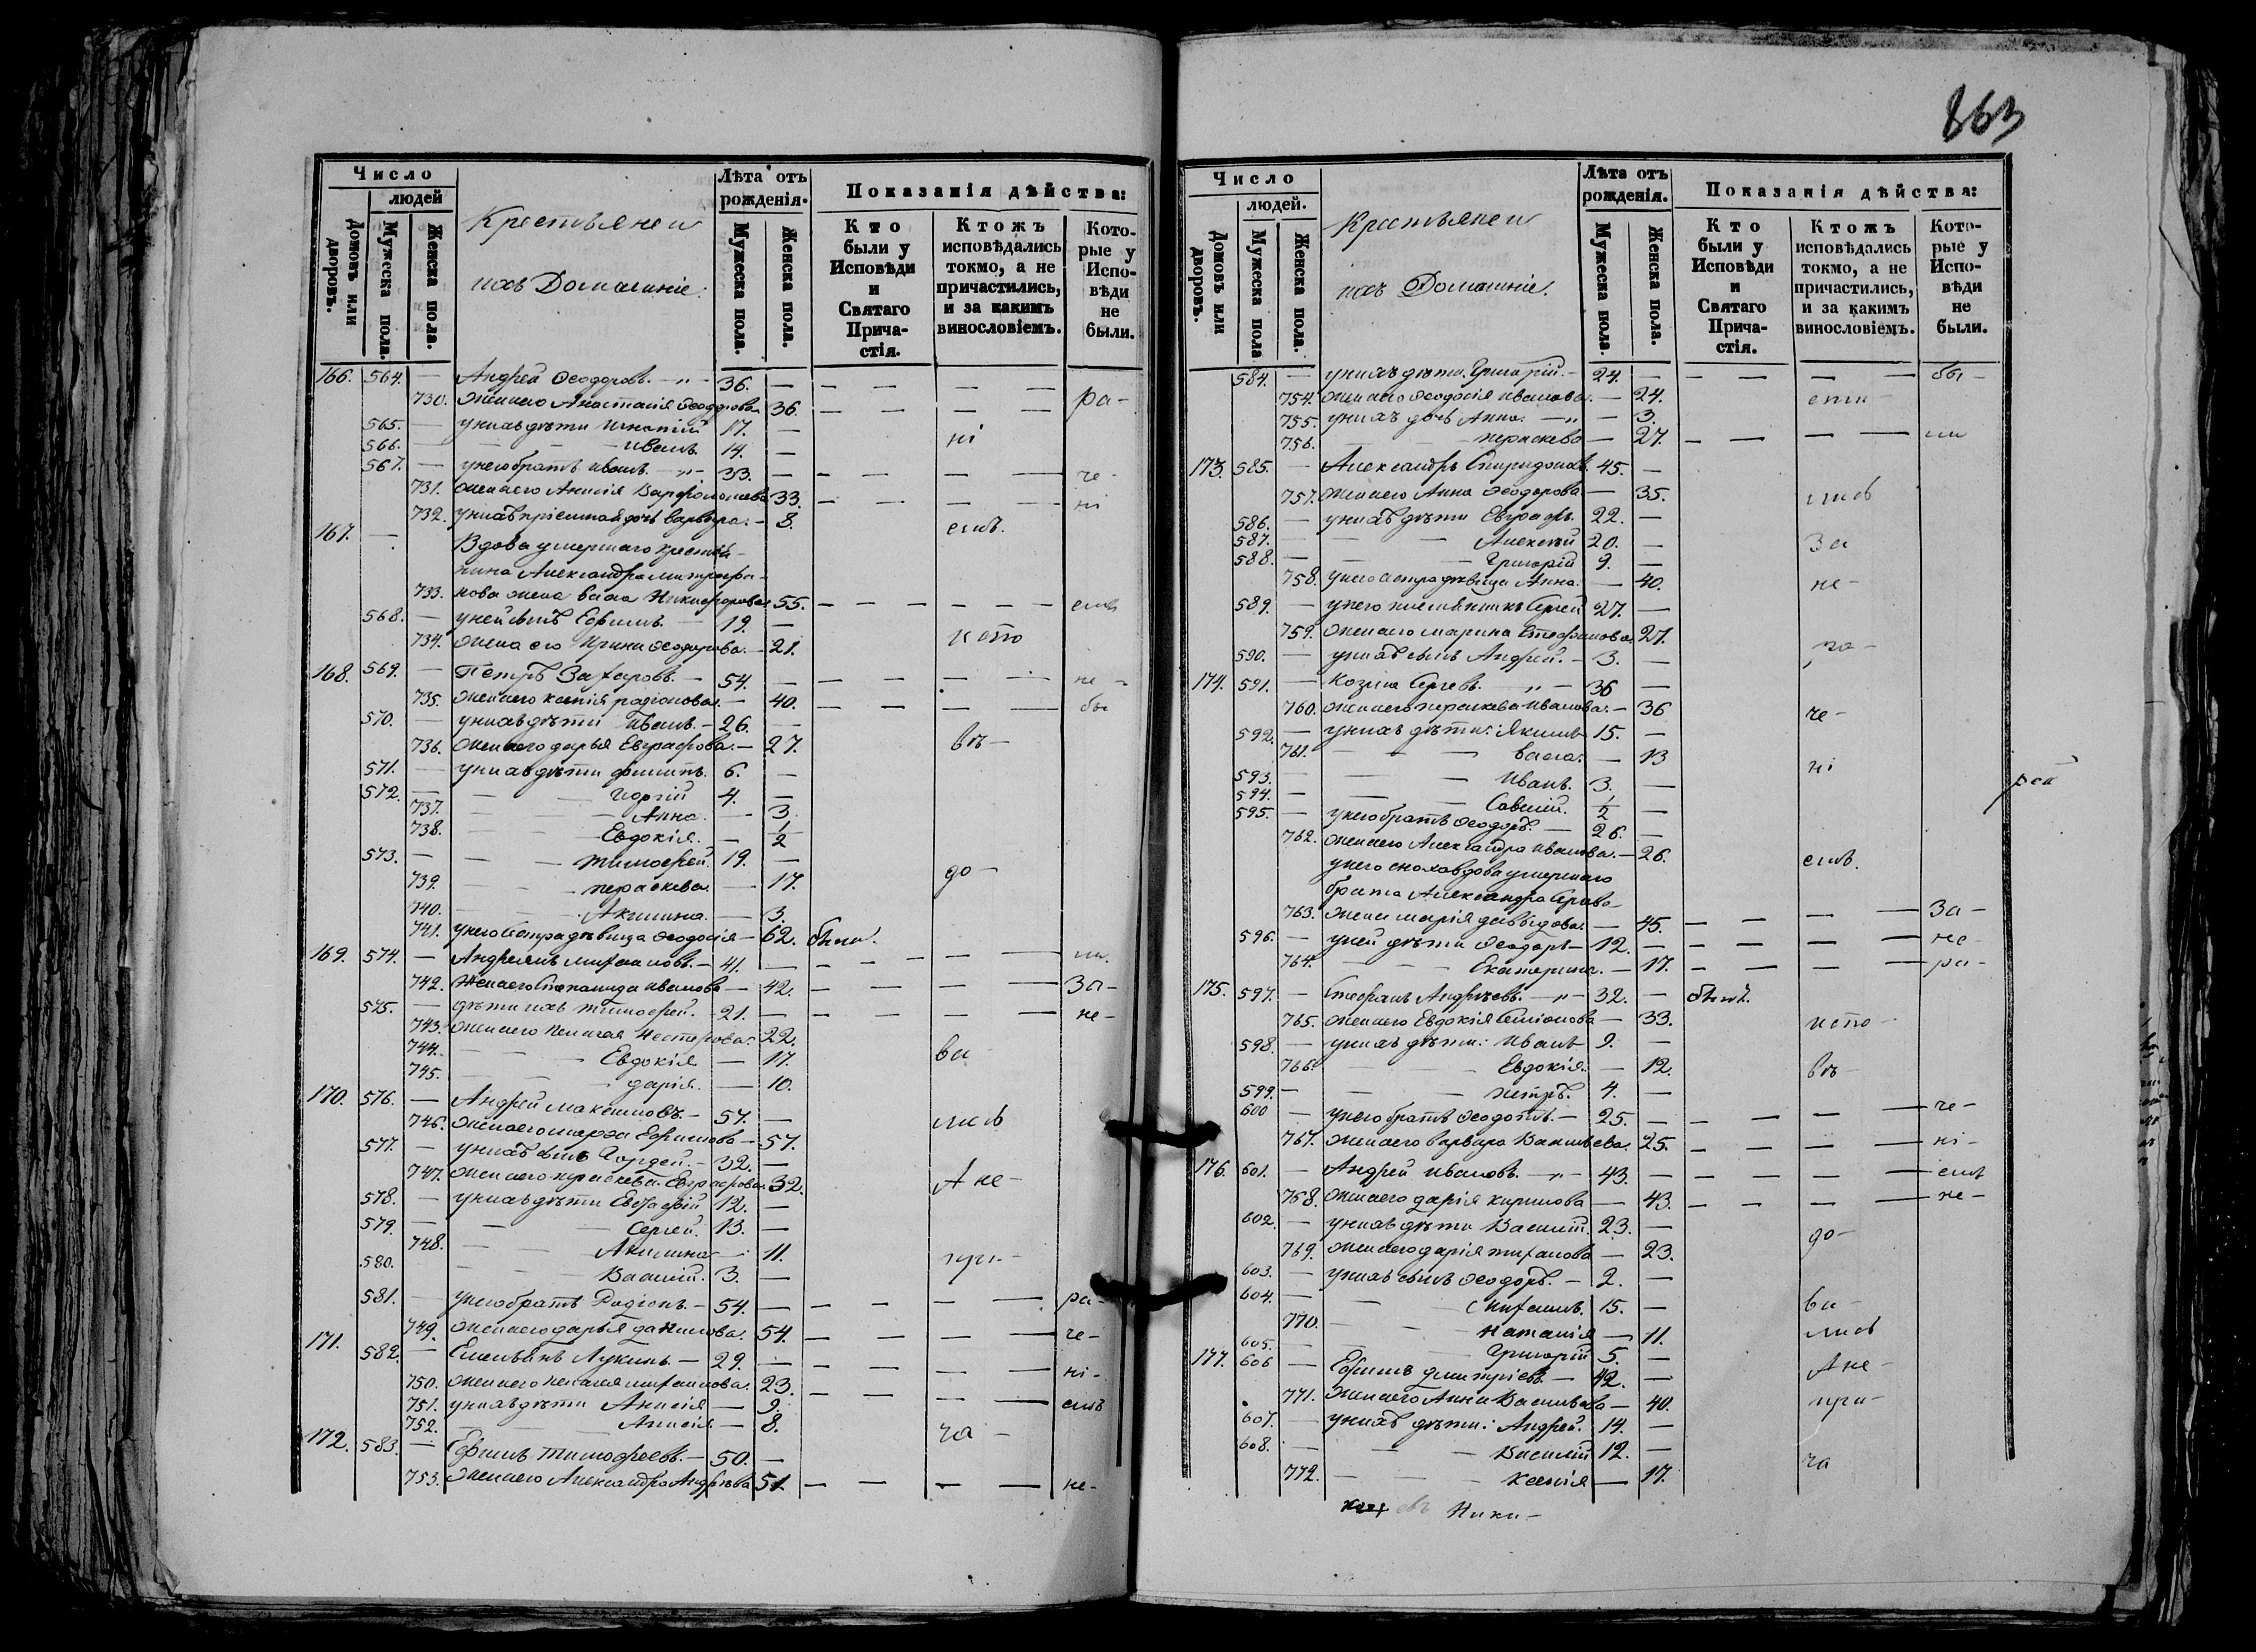 863
Число
людей
Домовъ или дворовъ.
Мужеска пола.
Женска пола.
Крестьяне и
ихъ Домашніе.
Лѣта отъ рожденія.
Мужеска пола.
Женска пола.
Показанія дѣйства:
Кто были у Исповѣди и Святаго Причастія.
Ктожъ исповѣдались токмо, а не причастились, и за какимъ винословіемъ.
Которые у Исповѣди не были.
166. 564. — Андрей Ѳеодоровъ. — 36. —
730. Жена его Анастасія Ѳеодорова 36. ра-
565. — у нихъ дѣти Игнатій 17. — ні
566. — Иванъ 14. —
567. — у него братъ Иванъ — 33. — че-
731. Жена его Анисія Варфоломеева 33. ні
732. у нихъ пріемная дочь Варвара. — 8. емъ.
167. — Вдова умершаго крестья-
нина Александра Митрофа-
733. нова жена Васса Никифорова 55. емъ
568. — у ней сынъ Ефимъ — 19. —
734. Жена его Ирина Ѳеодорова. — 21. испо
168. 569. — Петръ Захаровъ. — 54. — не-
735. Жена его Ксенія Радіонова. — 40. бы
570. — у нихъ дѣти Иванъ. — 26. —
736. Жена его Дарья Евграфова. — 27. вѣ-
571. — у нихъ дѣти Филипъ. 6. —
572. — Георгій 4. —
737. Анна. — 3.
738. Евдокія. — 1/2
573. — Тимофей. 19. —
739. Параскева. — 17. до-
740. Акилина. — 3.
741. у него сестра дѣвица Ѳеодосія — 62. была.
169. 574. — Андреянъ Михайловъ. — 41. — ли.
742. Жена его Степанида Иванова — 42. За-
575. — дѣти ихъ Тимофей. — 21. — не-
743. Жена его Пелагея Нестерова. 22.
744. Евдокія — 17. ва
745. Дарія. — 10.
170. 576. — Андрей Максимовъ. — 57. —
746. Жена его Марѳа Ефимова — 57. лись
577. — у нихъ сынъ Гордей. — 32. —
747. Жена его Параскева Евграфова. 32. А не-
578. — у нихъ дѣти Евстафій 12. —
579. — Сергей. 13. —
748. Акилина — 11. при-
580. Василій. 3. —
581. — у него братъ Родіонъ. — 54. — ра-
749. Жена его Дарья Данилова. 54. че-
171. 582. — Емельянъ Лукинъ — 29. — ні-
750. Жена его Пелагея Михайлова. 23.
751. у нихъ дѣти Анисія — 9. емъ
752. Анисія. — 8. ча-
172. 583. — Ефимъ Тимофеевъ. — 50. —
753. Жена его Александра Андрѣева 51. не-
Число
людей.
Домовъ или дворовъ.
Мужеска пола
Женска пола.
Крестьяне и
ихъ Домашніе.
Лѣта отъ рожденія.
Мужеска пола.
Женска пола.
Показанія дѣйства:
Кто были у Исповѣди и Святаго Причастія.
Ктожъ исповѣдались токмо, а не причастились, и за какимъ винословіемъ.
Которые у Исповѣди не были.
584. — у нихъ дѣти. Григорій. — 24. — бы-
754. Жена его Ѳеодосія Иванова. — 24.
755. у нихъ дочь Анна. — 3.
756. Параскева — 27. ли
173. 585. — Александръ Спиридоновъ. 45. —
757. Жена его Анна Ѳеодорова — 35. лись
586. — у нихъ дѣти Евграфъ. 22. —
587. — Алексѣй 20. — За
588. — Григорій 9. —
758. у него сестра дѣвица Анна. — 40. не-
589. — у него племянникъ Сергей 27. —
759. Жена его Марина Стефанова. 27.
590. — у нихъ сынъ Андрей. — 3. — ра-
174. 591. — Козьма Сергевъ. — 36 —
760. Жена его Параскева Иванова. — 36 че-
592. — у нихъ дѣти: Якимъ 15. —
761. Васса. — 13 ні
593. — Иванъ. 3. —
594. — Савелій. 1/2 —
595. — у него братъ Ѳеодоръ. — 26. —
762. Жена его Александра Иванова. — 26. емъ.
у него сноха вдова умершаго
брата Александра
763. жена Марія Давыдова. — 45. За-
596. — у ней дѣти Ѳеодоръ — 12. — не-
764. Екатерина. — 17. ра-
175. 597. — Стефанъ Андрѣевъ. — 32. — былъ.
765. Жена его Евдокія Семіонова — 33. испо-
598. — у нихъ дѣти: Иванъ 9. —
766. Евдокія. — 12. вѣ-
599. — Петръ. 4. —
600 — у него братъ Ѳеодотъ. — 25. — че-
767. Жена его Варвара Васильева. 25. ні-
176. 601. — Андрей Ивановъ. — 43. — емъ
768. Жена его Дарія Кирилова — 43. не-
602. — у нихъ дѣти Василій. 23. — до-
769. Жена его Дарія Тиханова — 23.
603. — у нихъ сынъ Ѳеодоръ. — 2. —
604. — Михаилъ. 15. — ва-
770. Наталія — 11. лись
605. — Григорій 5. —
177. 606 — Ефимъ Дмитріевъ. — 42. — А не-
771. Жена его Анна Васильева — 40. при-
607. — у нихъ дѣти: Андрей. 14. —
608. — Василій 12. —
772. Ксенія — 17. ча
рей
Ники-